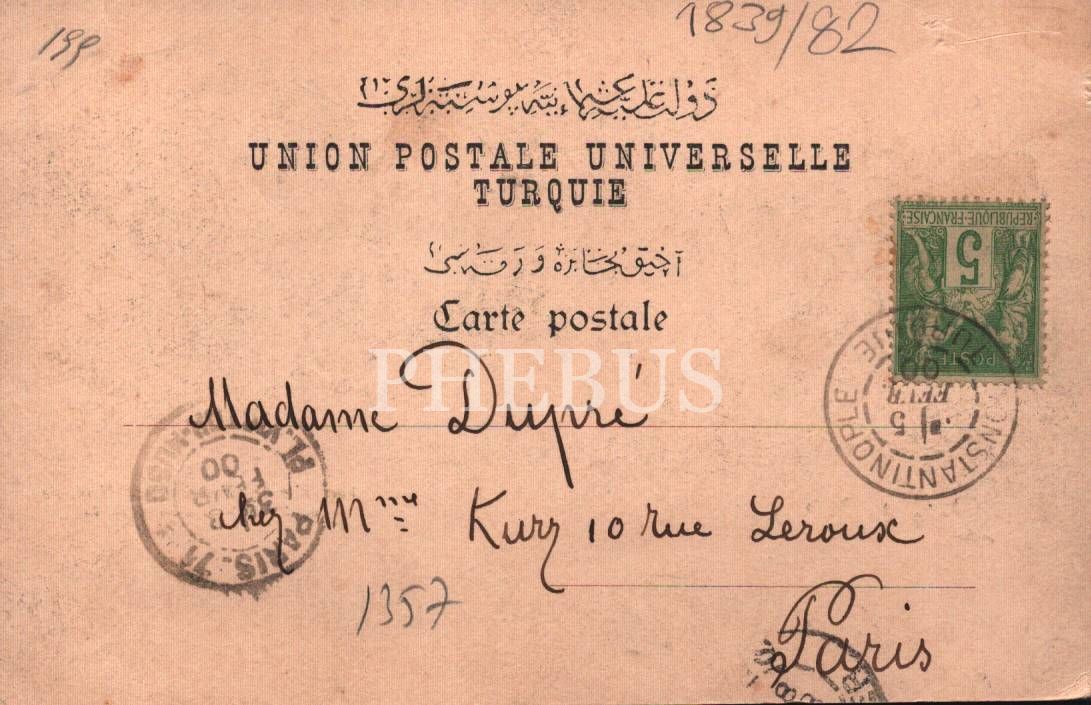 199
1839/82
دولت عليۀ عثمانيه پوسته لرى
UNION POSTALE UNIVERSELLE
TURQUIE
REPUBLIQUE FRANÇAISE
5
POSTE
آچيق مخابره ورقه سى
Carte postale
PHEBUS
Madame Dupré
CONSTANTINOPLE
5
FEVR
00
PARIS
00
chez Mme Kurz 10 rue Leroux
1357
Paris